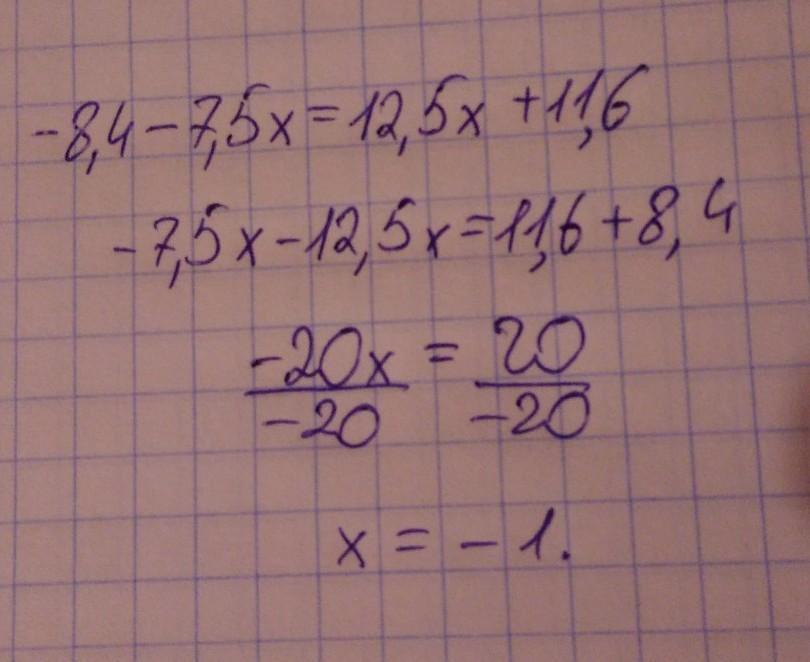 -8,4-7,5x=12,5x+11,6
-7,5x-12,5x=11,6+8,4
-20x/-20 = 20/-20
x = -1.